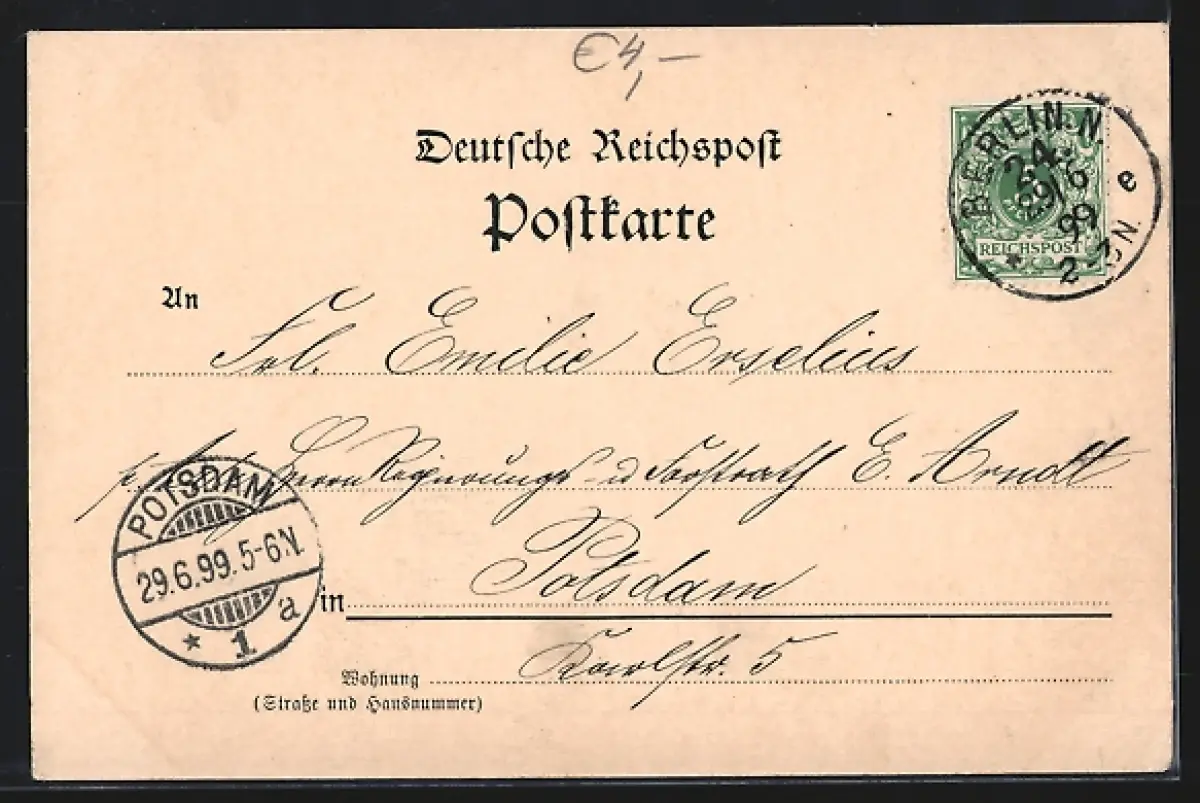 €4,—
Deutsche Reichspost
Postkarte
BERLIN.N.
24.
29/6
99
2-3N.
* e
REICHSPOST
An
Frl. Emilie Erselius
Herrn Regierungs- u Forstrath E. Arndt
POTSDAM
29.6.99.5-6N.
* 1 a
in Potsdam
Wohnung Karlstr. 5
(Straße und Hausnummer)